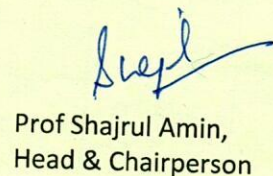 Prof Shajrul Amin,
Head & Chairperson